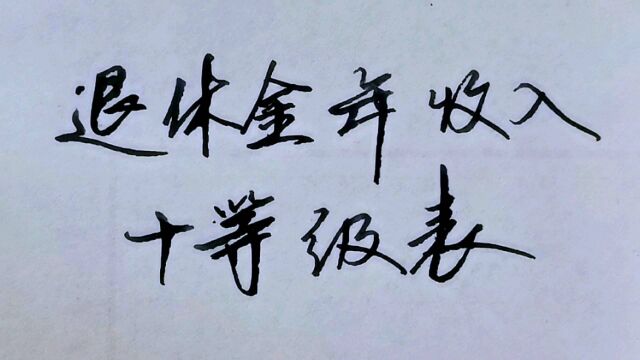 退休金年收入
十等级表